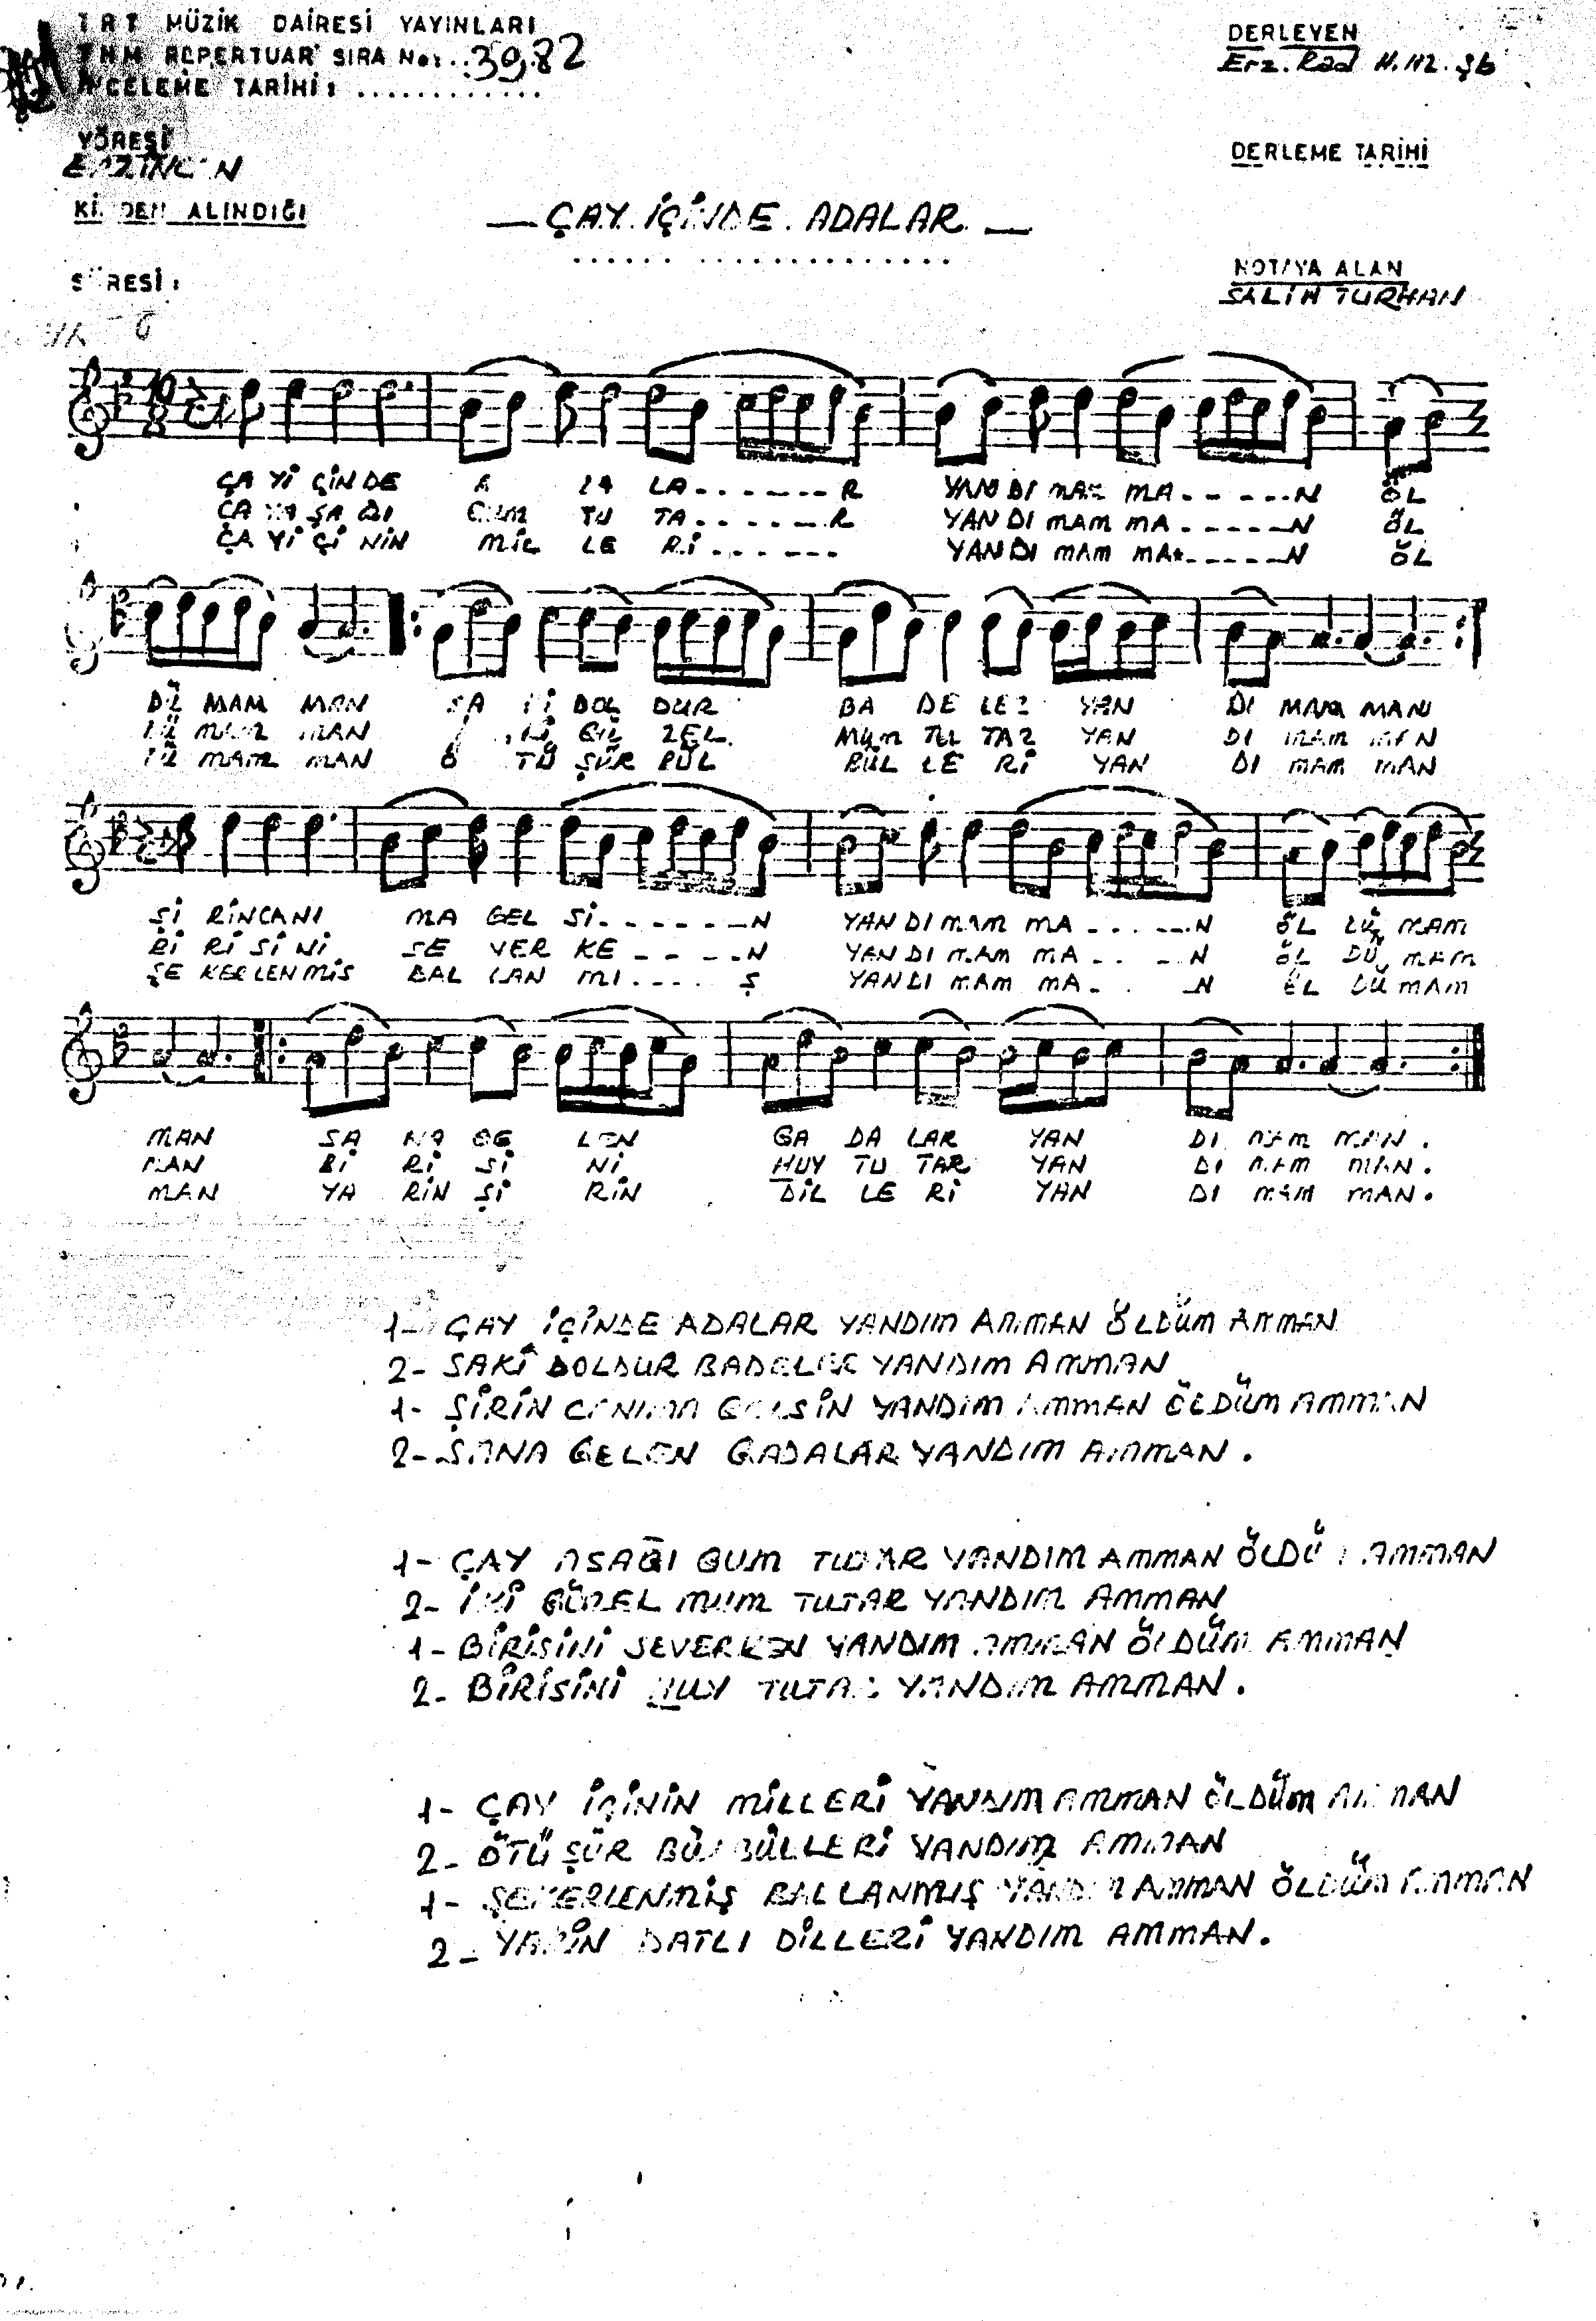 TRT MÜZİK DAİRESİ YAYINLARI
THM REPERTUAR SIRA No: 3982
İNCELEME TARİHİ: ............
DERLEYEN
Erz. Rad H.M.Şb
YÖRESİ
ERZİNCAN
DERLEME TARİHİ
KİMDEN ALINDIĞI
— ÇAY İÇİNDE ADALAR —
SÜRESİ:
NOTAYA ALAN
SALİH TURHAN
ÇA Yİ ÇİN DE A DA LA.......R YAN DI MAM MA.....N ÖL
ÇA YA ŞA ĞI GUM TU TA.......R YAN DI MAM MA.....N ÖL
ÇA Yİ Çİ NİN MİL LE Rİ...... YAN DI MAM MA.....N ÖL
DÜ MAM MAN SA Kİ DOL DUR BA DE LER YAN DI MAM MAN
DÜ MAM MAN İ Kİ GÜ ZEL MUM TU TAR YAN DI MAM MAN
DÜ MAM MAN Ö TÜ ŞÜR BÜL BÜL LE Rİ YAN DI MAM MAN
Şİ RİN CANI MA GEL Sİ......N YAN DI MAM MA.....N ÖL DÜ MAM
Bİ Rİ Sİ Nİ SE VER KE....N YAN DI MAM MA....N ÖL DÜ MAM
ŞE KER LEN MİŞ BAL LAN MI.... Ş YAN DI MAM MA.. N ÖL DÜ MAM
MAN SA NA GE LEN GA DA LAR YAN DI MAM MAN.
MAN Bİ Rİ Sİ Nİ HUY TU TAR YAN DI MAM MAN.
MAN YA RİN Şİ RİN DİL LE Rİ YAN DI MAM MAN.
1- ÇAY İÇİNDE ADALAR YANDIM AMMAN ÖLDÜM AMMAN
2- SAKİ DOLDUR BADELER YANDIM AMMAN
1- ŞİRİN CANIMA GELSİN YANDIM AMMAN ÖLDÜM AMMAN
2- SANA GELEN GADALAR YANDIM AMMAN.
1- ÇAY AŞAĞI GUM TUTAR YANDIM AMMAN ÖLDÜM AMMAN
2- İKİ GÜZEL MUM TUTAR YANDIM AMMAN
1- BİRİSİNİ SEVERKEN YANDIM AMMAN ÖLDÜM AMMAN
2- BİRİSİNİ HUY TUTAR YANDIM AMMAN.
1- ÇAY İÇİNİN MİLLERİ YANDIM AMMAN ÖLDÜM AMMAN
2- ÖTÜŞÜR BÜLBÜLLERİ YANDIM AMMAN
1- ŞEKERLENMİŞ BALLANMIŞ YANDIM AMMAN ÖLDÜM AMMAN
2- YARİN DATLI DİLLERİ YANDIM AMMAN.